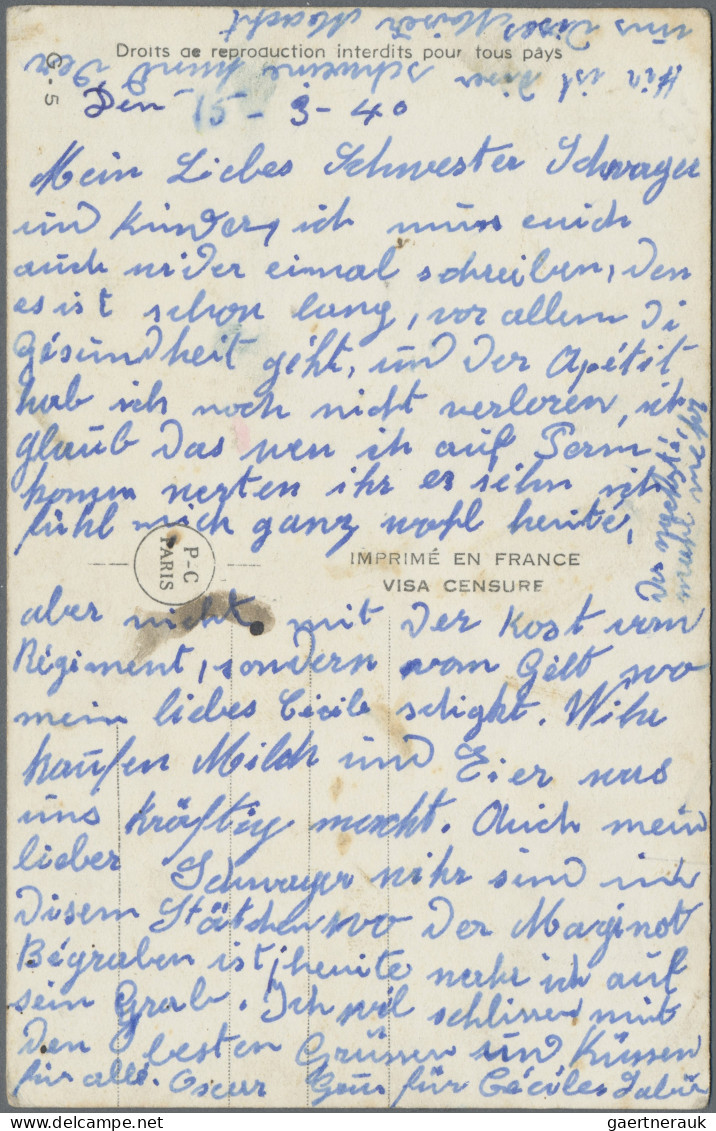 uns dises
Hir ist ein schweine hund der
Droits de reproduction interdits pour tous pays
G-5
Den 15-3-40
Mein Liebes Schwester Schwager
und Kinder, ich mus euich
auch wider eimal schreiben, den
es ist schon lang, vor allem di
Gésundheit géht, und der Apétit
hab ich noch nicht verloren, ich
glaub das wen ich auf Perm.
komm werten ihr es séhn ich
fühl mich ganz wohl heute,
Der nechste
mahl mehr
P-C
PARIS
IMPRIMÉ EN FRANCE
VISA CENSURE
aber nicht mit der Kost vom
Régiment, sondern vom Gélt wo
mein liebes Cécile schigkt. Wihr
kaufen Milch und Eier was
uns kräftig macht. Auich mein
lieber Schwager wihr sind in
disem Stätchen wo der Maginot
Bégraben ist, heuite wahr ich auf
sein Grab. Ich wil schlissen mit
den besten Grüssen und Küssen
für alle. Oscar Grus für Céciles
gaertnerauk